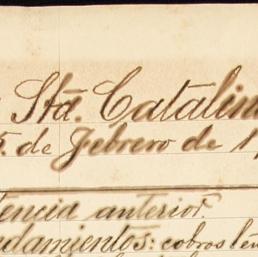 Sta. Catalina
5. de Febrero de 1
tencia anterior.
ndamientos: cobros